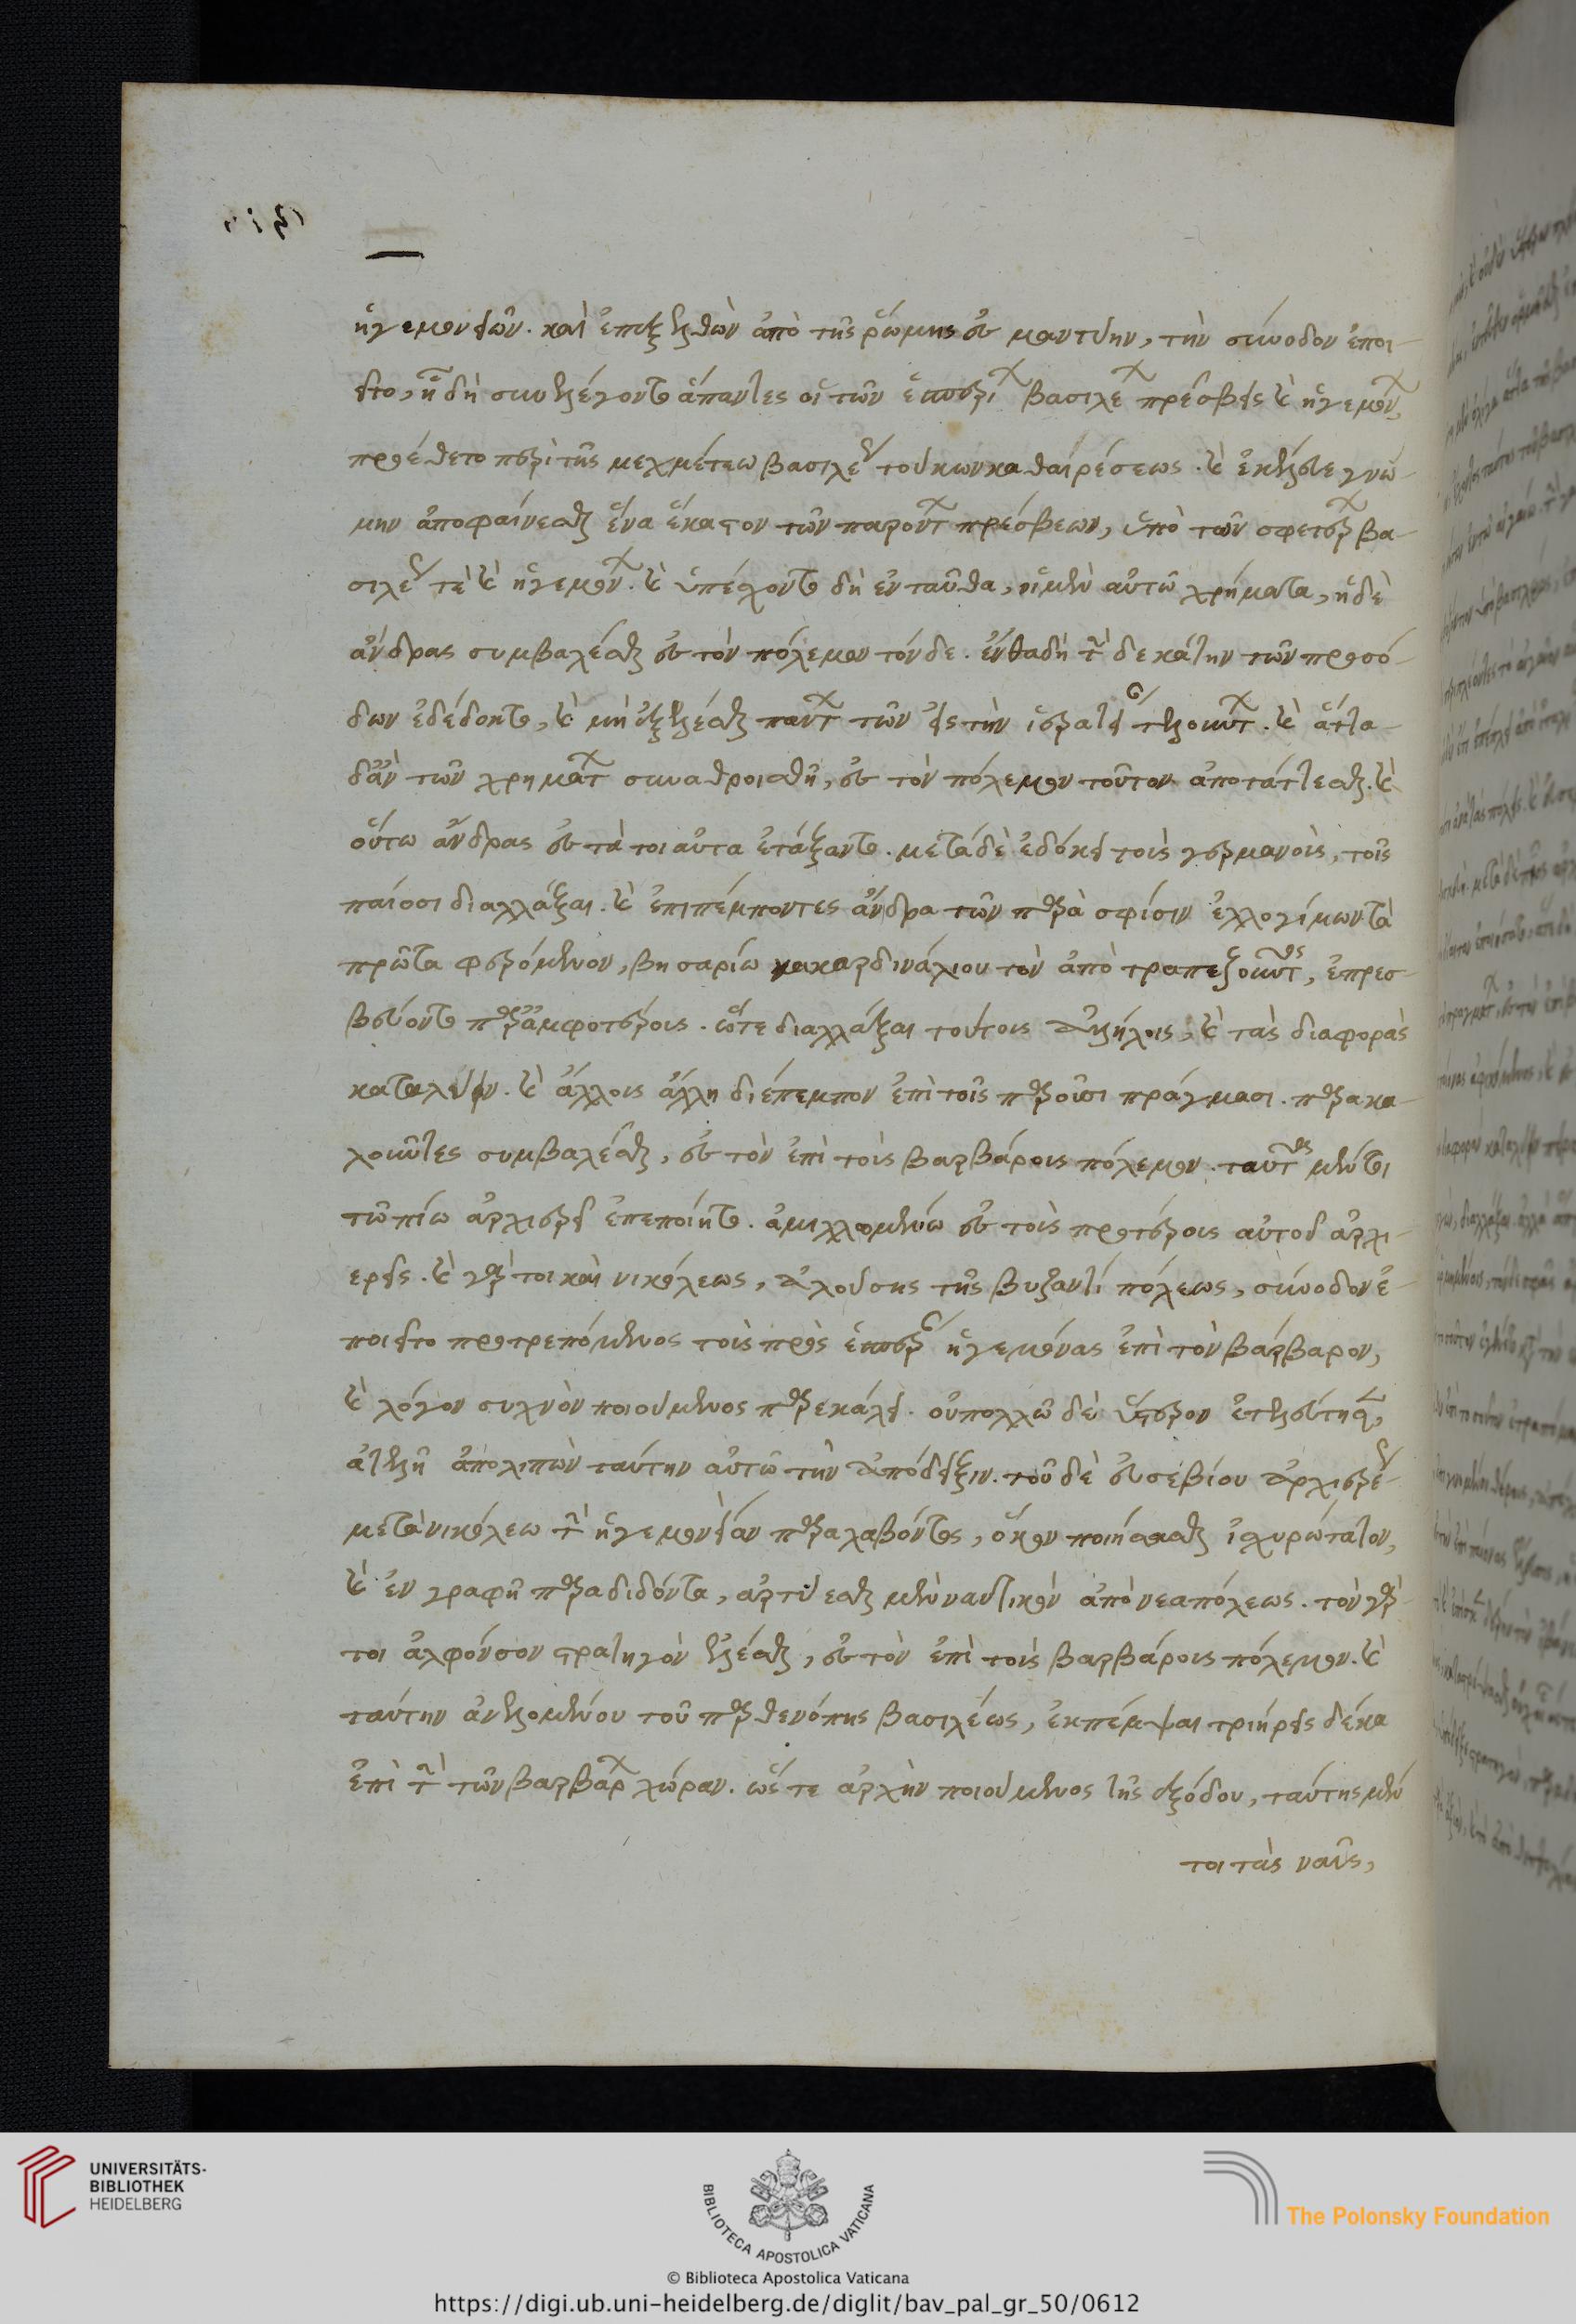 ἡγεμονειῶν. καὶ ἐπεξελθὼν ἀπὸ τῆς ῥώμης ἐς μαντύην, τὴν σύνοδον ἐποι-
εῖτο, ᾗ δὴ συνελέγοντο ἅπαντες οἱ τῶν ἑσπερίων βασιλέων πρέσβεις καὶ ἡγεμόνων,
προέθετο περὶ τῆς μεχμέτεω βασιλέως τούρκων καθαιρέσεως. καὶ ἐκέλευε γνώ-
μην ἀποφαίνεσθαι ἕνα ἕκαστον τῶν παρόντων πρέσβεων, ὑπὸ τῶν σφετέρων βα-
σιλέων τὲ καὶ ἡγεμόνων. καὶ ὑπέσχοντο δὴ ἐνταῦθα, οἱ μὲν αὐτῶ χρήματα, οἱ δὲ
ἄνδρας συμβαλέσθαι ἐς τὸν πόλεμον τόνδε. ἔνθα δὴ τὴν δεκάτην τῶν προσό-
δων ἐδέδοκτο, καὶ μὴ ἐξελέσθαι πάντων τῶν ἐς τὴν ἱερατείαν τελούντων. καὶ ἅττα
δ' ἂν τῶν χρημάτων συναθροισθῆ, ἐς τὸν πόλεμον τοῦτον ἀποτάττεσθαι. καὶ
οὕτω ἄνδρας ἐς τὰ τοιαῦτα ἐτάξαντο. μετὰ δὲ ἐδόκει τοῖς γερμανοῖς, τοῖς
παίοσι διαλλάξαι. καὶ ἐπιπέμποντες ἄνδρα τῶν παρὰ σφίσιν ἐλλογίμων τὰ
πρῶτα φερόμενον, βησαρίωνα καρδινάλιον τὸν ἀπὸ τραπεζοῦντος, ἐπρεσ-
βεύοντο παρ' ἀμφοτέροις. ὥστε διαλλάξαι τούτοις ἀλλήλοις, καὶ τὰς διαφορὰς
καταλύειν. καὶ ἄλλοις ἄλλη διέπεμπον ἐπὶ τοῖς παροῦσι πράγμασι. παρακα-
λοῦντες συμβαλέσθαι, ἐς τὸν ἐπὶ τοῖς βαρβάροις πόλεμον. ταῦτα μέντοι
τῶ πίω ἀρχιερεῖ ἐπεποίητο. ἁμιλλωμένω ἐς τοῖς προτέροις αὐτοῦ ἀρχι-
ερεῖς. καὶ γάρ τοι καὶ νικόλεως, ἁλούσης τῆς βυζαντίου πόλεως, σύνοδον ἐ-
ποιεῖτο προτρεπόμενος τοῖς πρὸς ἑσπέραν ἡγεμόνας ἐπὶ τὸν βάρβαρον,
καὶ λόγον συχνὸν ποιούμενος παρεκάλει. οὐ πολλῶ δὲ ὕστερον ἐτελεύτησεν,
ἀτελῆ ἀπολιπὼν ταύτην αὐτῶ τὴν ἀπόδειξιν. τοῦ δὲ εὐσεβίου ἀρχιερέως
μετὰ νικόλεω τὴν ἡγεμονείαν παραλαβόντος, ὅρκον ποιήσασθαι ἰσχυρώτατον,
καὶ ἐν γραφῆ παραδιδόντα, ἀρτύεσθαι μὲν ναυτικὸν ἀπὸ νεαπόλεως. τὸν γάρ
τοι ἀλφόνσον στρατηγὸν ἑλέσθαι, ἐς τὸν ἐπὶ τοῖς βαρβάροις πόλεμον. καὶ
ταύτην ἀνελομένου τοῦ παρθενόπης βασιλέως, ἐκπέμψαι τριήρεις δέκα
ἐπὶ τὴν τῶν βαρβάρων χώραν. ὥστε ἀρχὴν ποιούμενος τῆς ἐξόδου, ταύτης μέν
τοι τὰς ναῦς,
UNIVERSITÄTS-
BIBLIOTHEK
HEIDELBERG
BIBLIOTECA APOSTOLICA VATICANA
The Polonsky Foundation
© Biblioteca Apostolica Vaticana
https://digi.ub.uni-heidelberg.de/diglit/bav_pal_gr_50/0612